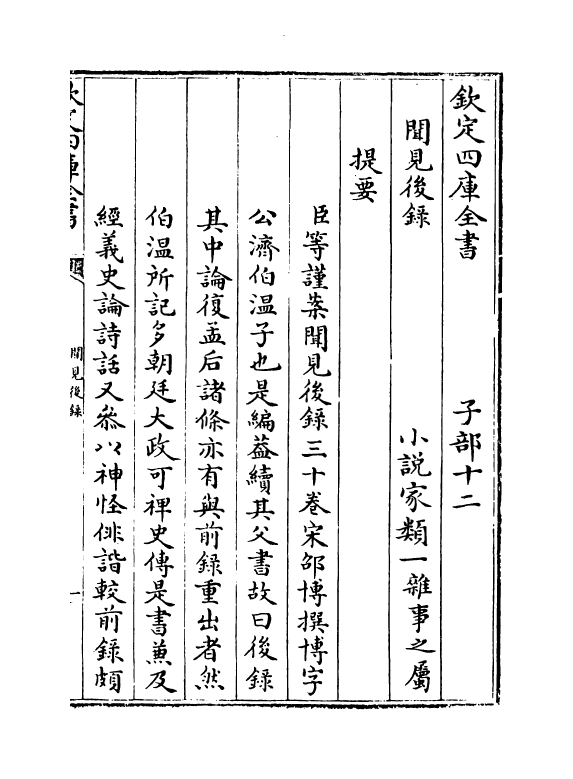 欽定四庫全書 子部十二
聞見後録 小説家類一雜事之屬
提要
臣等謹案聞見後録三十卷宋邵博撰博字
公濟伯温子也是編葢續其父書故曰後録
其中論復孟后諸條亦有與前録重出者然
伯温所記多朝廷大政可裨史傳是書兼及
經義史論詩話又叅以神怪俳諧較前録頗
欽定四庫全書
聞見後録
一